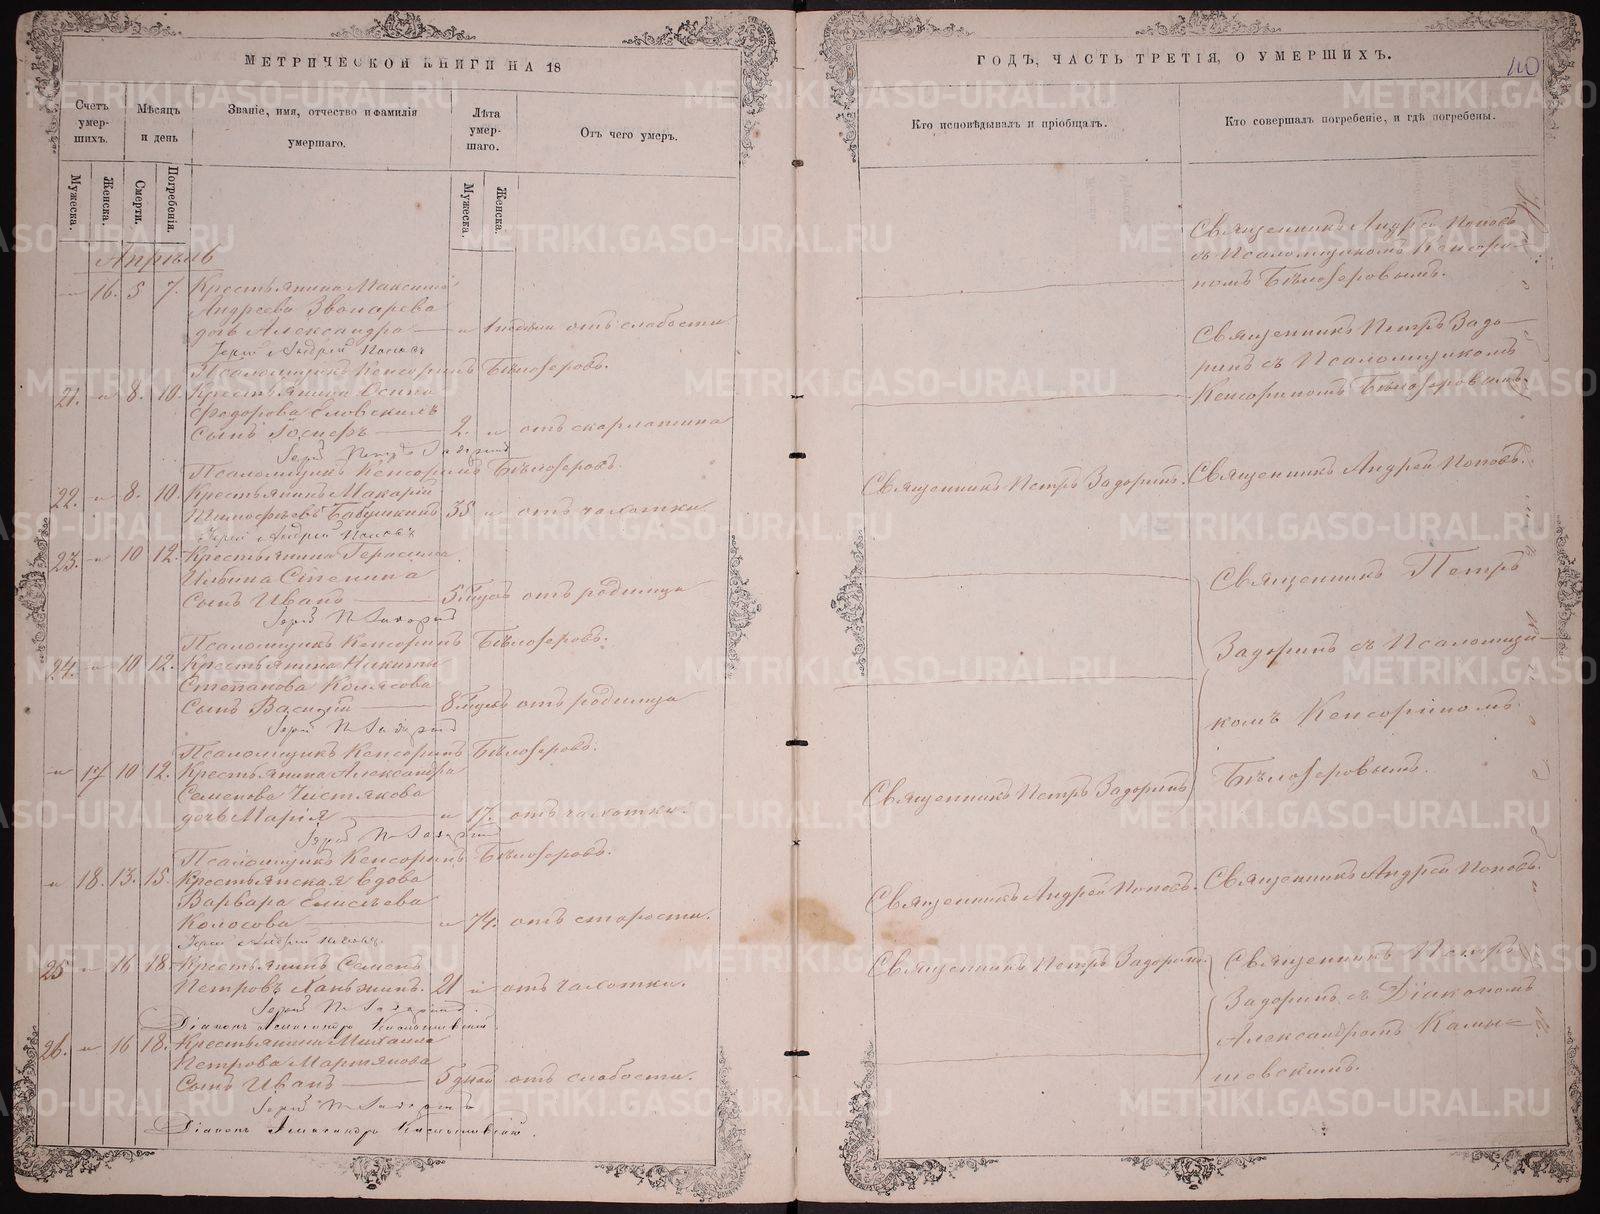 МЕТРИЧЕСКОЙ КНИГИ НА 18
Счетъ умер-шихъ.
Мѣсяцъ и день
Званіе, имя, отчество и фамилія умершаго.
Лѣта умер-шаго.
Отъ чего умеръ.
Мужеска.
Женска.
Смерти.
Погребенія.
Мужеска.
Женска.
Апрѣль
16. 5 7. Крестьянина Максима
Андреева Звонарева
дочь Александра — „ 1 недѣли отъ слабости
Іерей Андрей Поповъ
Псаломщикъ Кенсоринъ Бѣлозеровъ.
21. „ 8. 10. Крестьянина Осипа
Ѳедорова
сынъ Іосифъ — 2. „ отъ скарлатина
Іерей Петръ Задоринъ
Псаломщикъ Кенсоринъ Бѣлозеровъ.
22. „ 8. 10. Крестьянинъ Макарій
Тимофѣевъ Бабушкинъ 35 „ отъ чахотки
Іерей Андрей Поповъ
23. „ 10 12. Крестьянина Герасима
Ильина Степина
сынъ Иванъ — 5 отъ родимца
Іерей П. Задоринъ
Псаломщикъ Кенсоринъ Бѣлозеровъ.
24. „ 10 12. Крестьянина Никиты
Степанова Колясова
сынъ Василій — 8 отъ родимца
Іерей П. Задоринъ
Псаломщикъ Кенсоринъ Бѣлозеровъ.
„ 17 10 12. Крестьянина Александра
Семенова Чистякова
дочь Марія — „ 17. отъ чахотки.
Іерей П. Задоринъ
Псаломщикъ Кенсоринъ Бѣлозеровъ.
„ 18. 13. 15. Крестьянская вдова
Варвара Елисѣева
Колосова — „ 74. отъ старости.
Іерей Андрей Поповъ.
25 „ 16 18. Крестьянинъ Семенъ
Петровъ Ханжинъ. 21 „ отъ чахотки.
Іерей П. Задоринъ.
Діаконъ Александръ Камышевскій.
26. „ 16 18. Крестьянина Михаила
Петрова Мартянова
сынъ Иванъ — 5 дней отъ слабости.
Іерей П. Задоринъ
Діаконъ Александръ Камышевскій.
ГОДЪ, ЧАСТЬ ТРЕТІЯ, О УМЕРШИХЪ.
40
Кто исповѣдывалъ и пріобщалъ.
Кто совершалъ погребеніе, и гдѣ погребены.
Священникъ Андрей Поповъ
съ Псаломщикомъ Кенсори-
номъ Бѣлозеровымъ.
Священникъ Петръ Задо-
ринъ съ Псаломщикомъ
Кенсориномъ Бѣлозеровымъ.
Священникъ Петръ Задоринъ. Священникъ Андрей Поповъ.
Священникъ Петръ
Задоринъ съ Псаломщи-
комъ Кенсориномъ
Бѣлозеровымъ.
Священникъ Петръ Задоринъ
Священникъ Андрей Поповъ. Священникъ Андрей Поповъ.
Священникъ Петръ Задоринъ. Священникъ Петръ
Задоринъ съ Діакономъ
Александромъ Камы-
шевскимъ.
METRIKI.GASO-URAL.RU